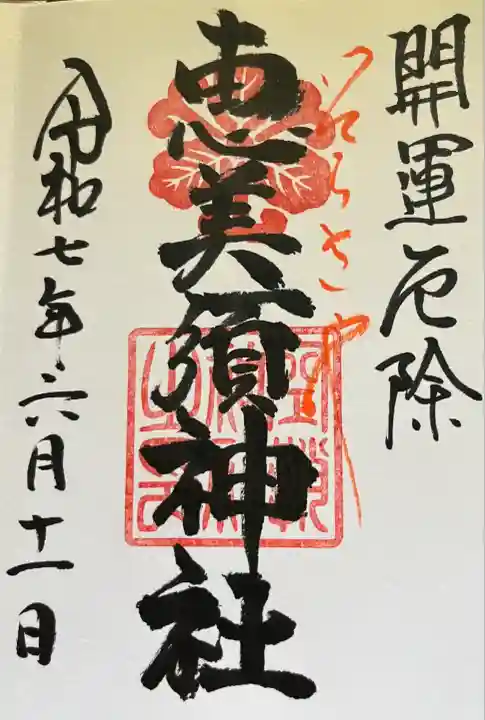 開運厄除
恵美須神社
令和七年六月十一日